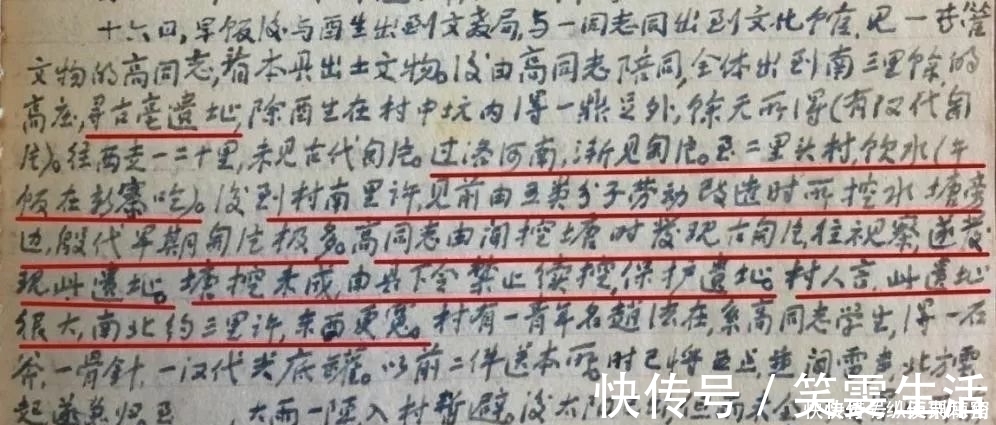 十六日,早饭后与酉生出到文教局,与一同志同出到文化馆,见一书管
文物的高同志,看本县出土文物。后由高同志陪同,全体出到南三里馀的
高庄,寻古亳遗址,除酉生在村中坑内得一鼎足外,馀无所得(有汉代陶
片)。往西走一二十里,未见古代陶片。过洛河南,渐见陶片。至二里头村,饮水(午
饭在新寨吃)。后到村南里许,见前由五类分子劳动改造时所挖水塘旁
边,殷代早期陶片极多。高同志由闻挖塘时发现古陶片,往视察,遂发
现此遗址。塘挖未成,由县下令禁止续挖,保护遗址。村人言,此遗址
很大,南北约三里许,东西更宽。村有一青年名趙法在,系高同志学生,得一石
斧,一骨針,一汉代尖底罐。以前二件送本所。时已将五点,楚闻雷声,北方云
起,遂急归。至 大雨一陣,入村暫避。后
快传号/笑霏生活